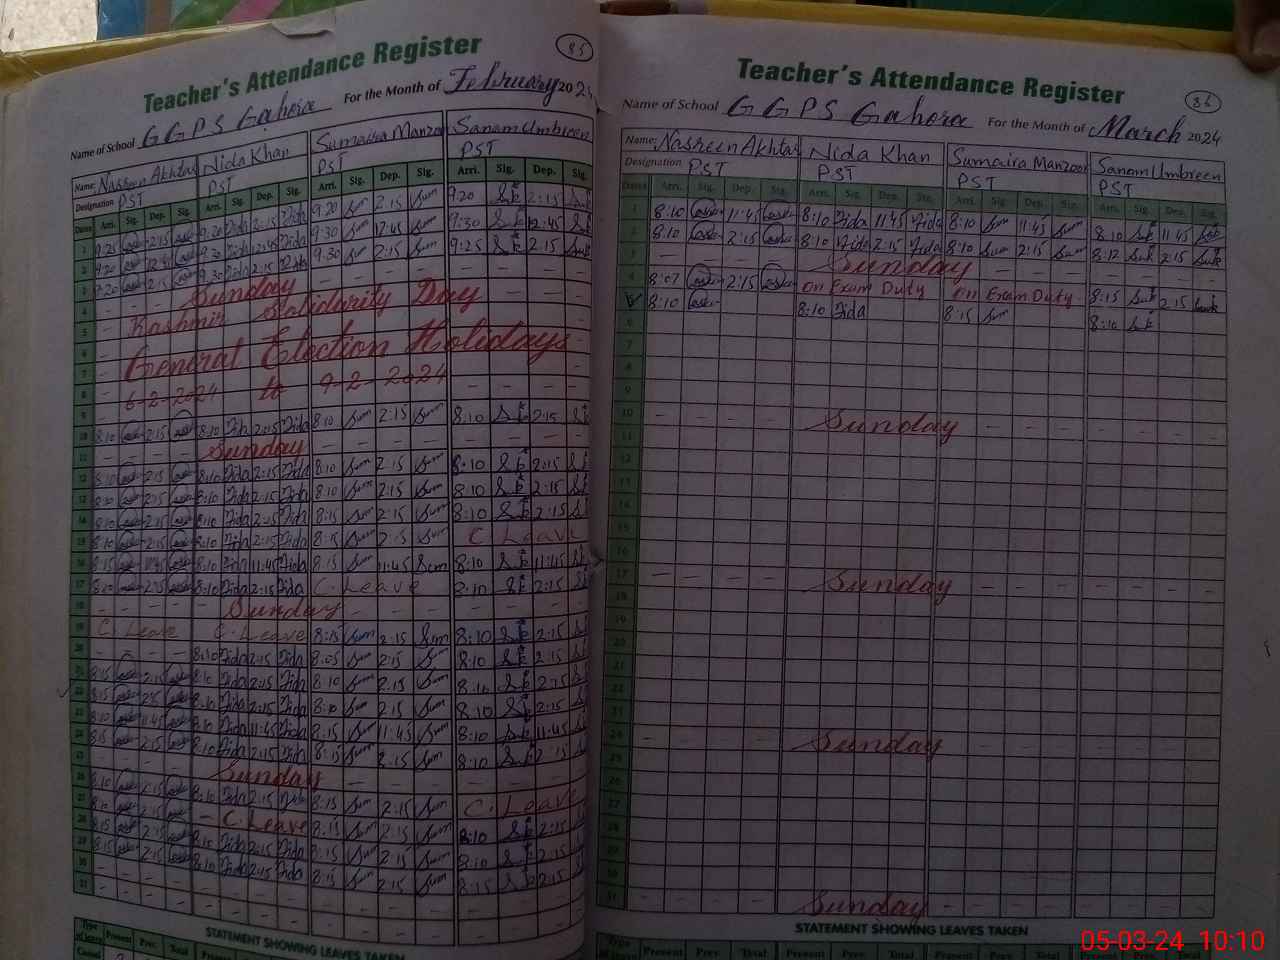 Teacher's Attendance Register
85
Name of School GGPS Gahora For the Month of February 2024
Name: Nasreen Akhtar Nida Khan Sumaira Manzoor Sanam Umbreen
Designation PST PST PST PST
Dates Arri. Sig. Dep. Sig. Arri. Sig. Dep. Sig. Arri. Sig. Dep. Sig. Arri. Sig. Dep. Sig.
1 9:25 2:15 9:20 Nida 2:15 Nida 9:20 Sum 2:15 Sum 9:20 Sk 2:15 Sk
2 9:20 12:45 9:30 Nida 12:45 Nida 9:30 Sum 12:45 Sum 9:30 Sk 12:45 Sk
3 9:20 2:15 9:30 Nida 2:15 Nida 9:30 Sum 2:15 Sum 9:25 Sk 2:15 Suk
4 Sunday
5 Kashmir Solidarity Day
6
7 General Election Holidays
8 6-2-2024 to 9-2-2024
9
10 8:10 2:15 8:10 Nida 2:15 Nida 8:10 Sum 2:15 Sum 8:10 Sk 2:15 Sk
11 Sunday
12 8:10 2:15 8:10 Nida 2:15 Nida 8:10 Sum 2:15 Sum 8:10 Sk 2:15 Sk
13 8:10 2:15 8:10 Nida 2:15 Nida 8:10 Sum 2:15 Sum 8:10 Sk 2:15 Sk
14 8:10 2:15 8:10 Nida 2:15 Nida 8:15 Sum 2:15 Sum 8:10 Sk 2:15 Sk
15 8:10 2:15 8:10 Nida 2:15 Nida 8:15 Sum 2:15 Sum C. Leave
16 8:15 11:45 8:10 Nida 11:45 Nida 8:15 Sum 11:45 Sum 8:10 Sk 11:45 Sk
17 8:10 2:15 8:10 Nida 2:15 Nida C. Leave 8:10 Sk 2:15 Sk
18 Sunday
19 C. Leave C. Leave 8:15 Sum 2:15 Sum 8:10 Sk 2:15 Sk
20 8:10 Nida 2:15 Nida 8:05 Sum 2:15 Sum 8:10 Sk 2:15
21 8:15 2:15 8:10 Nida 2:15 Nida 8:10 Sum 2:15 Sum 8:10 Sk 2:15 Sk
22 8:15 2:15 8:10 Nida 2:15 Nida 8:10 Sum 2:15 Sum 8:10 Sk 2:15 Sk
23 8:10 11:45 8:10 Nida 11:45 Nida 8:15 Sum 11:45 Sum 8:10 Sk 11:45 Sk
24 8:15 2:15 8:10 Nida 2:15 Nida 8:15 Sum 2:15 Sum 8:10 Sk 2:15 Sk
25 Sunday
26 8:10 2:15 8:10 Nida 2:15 Nida 8:15 Sum 2:15 Sum C. Leave
27 8:10 2:15 C. Leave 8:15 Sum 2:15 Sum 8:10 Sk 2:15
28 8:15 2:15 8:15 Nida 2:15 Nida 8:15 Sum 2:15 Sum 8:10 Sk 2:15
29 8:15 2:15 8:10 Nida 2:15 Nida 8:15 Sum 2:15 Sum 8:15 Sk 2:15
30
31
STATEMENT SHOWING LEAVES TAKEN
Type of Leave Present Prev. Total Present Prev. Total
Casual
Teacher's Attendance Register
86
Name of School GGPS Gahora For the Month of March 2024
Name: Nasreen Akhtar Nida Khan Sumaira Manzoor Sanam Umbreen
Designation PST PST PST PST
Dates Arri. Sig. Dep. Sig. Arri. Sig. Dep. Sig. Arri. Sig. Dep. Sig. Arri. Sig. Dep. Sig.
1 8:10 11:45 8:10 Nida 11:45 Nida 8:10 Sum 11:45 Sum 8:10 Suk 11:45 Suk
2 8:10 2:15 8:10 Nida 2:15 Nida 8:10 Sum 2:15 Sum 8:12 Suk 2:15 Suk
3 Sunday
4 8:07 2:15 on Exam Duty on Exam Duty 8:15 Suk 2:15 Suk
8:10 8:10 Nida 8:15 Sum 8:10 Suk
6
7
8
9
10 Sunday
11
12
13
14
15
16
17 Sunday
18
19
20
21
22
23
24 Sunday
25
26
27
28
29
30
31 Sunday
STATEMENT SHOWING LEAVES TAKEN
Type Present Prev. Total Present Prev. Total Present Prev. Total
05-03-24 10:10